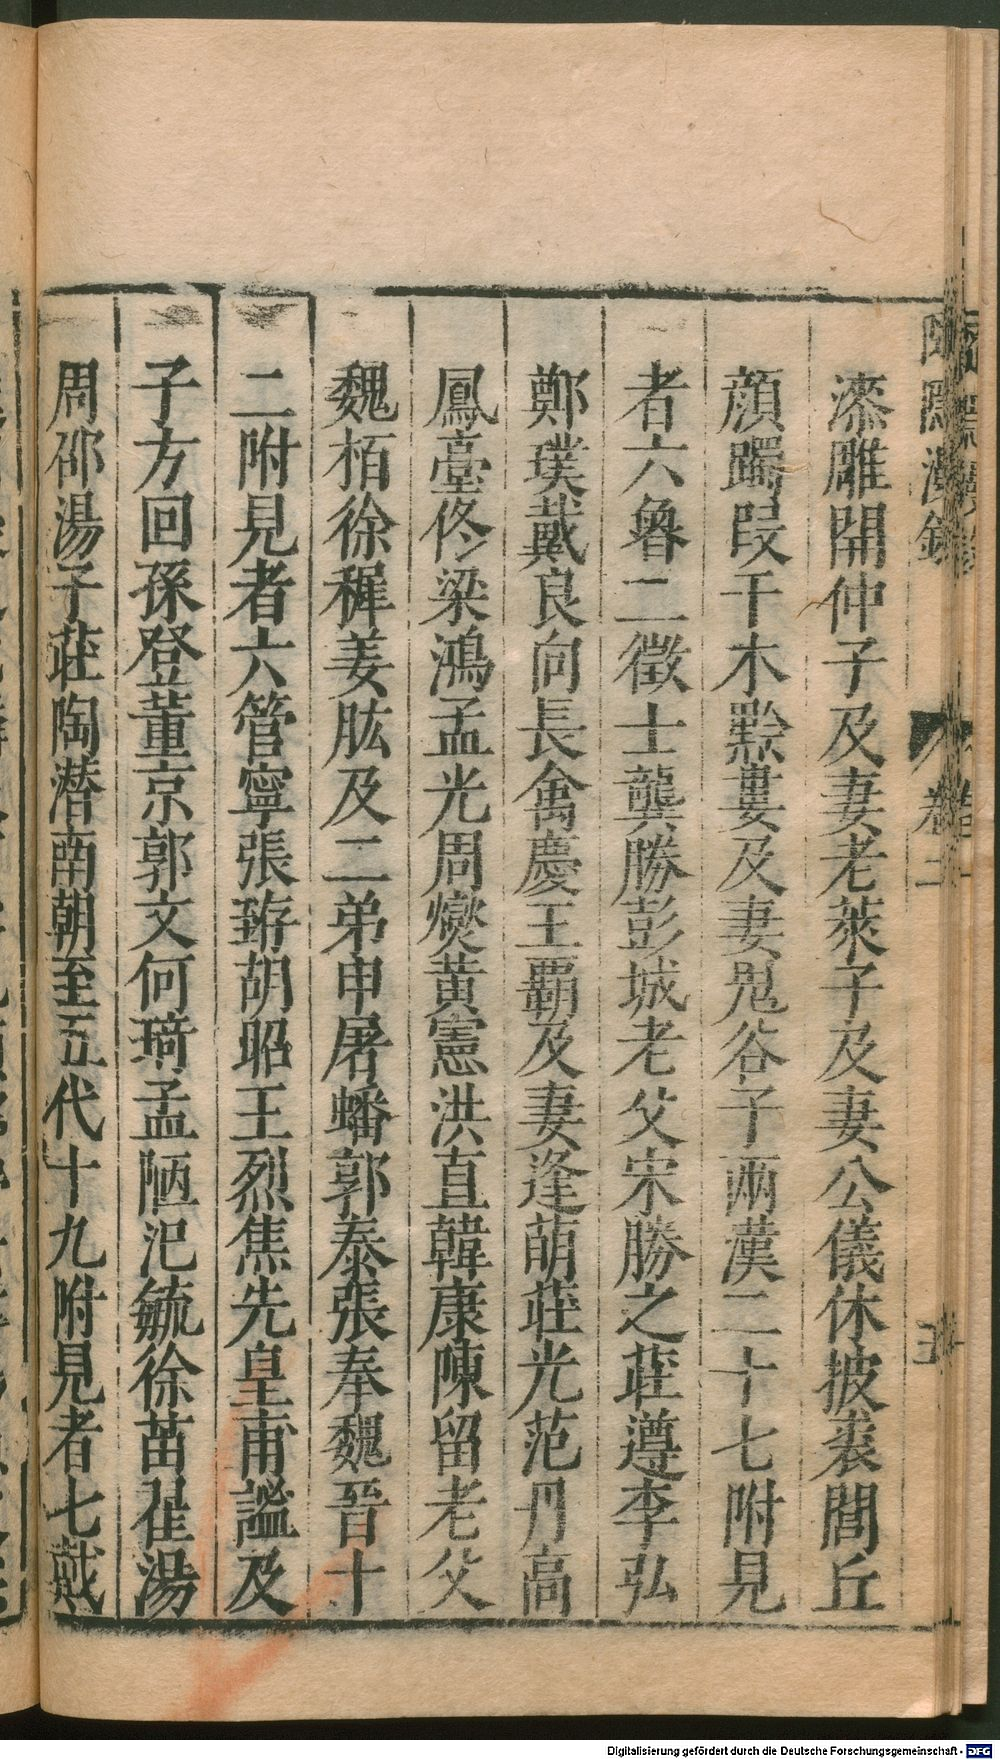 漆雕開仲子及妻老萊子及妻公儀休披裘閭丘
顏躅段干木黔婁及妻鬼谷子兩漢二十七附見
者六魯二徵士龔勝彭城老父宋勝之莊遵李弘
鄭璞戴良向長禽慶王霸及妻逢萌莊光范丹高
鳳臺佟梁鴻孟光周燮黃憲洪直韓康陳留老父
魏栢徐穉姜肱及二弟申屠蟠郭泰張奉魏晉十
二附見者六管寧張臶胡昭王烈焦先皇甫謐及
子方回孫登董京郭文何琦孟陋氾毓徐苗翟湯
周邵湯子莊陶潛南朝至五代十九附見者七戴
卷二
五
Digitalisierung gefördert durch die Deutsche Forschungsgemeinschaft - DFG